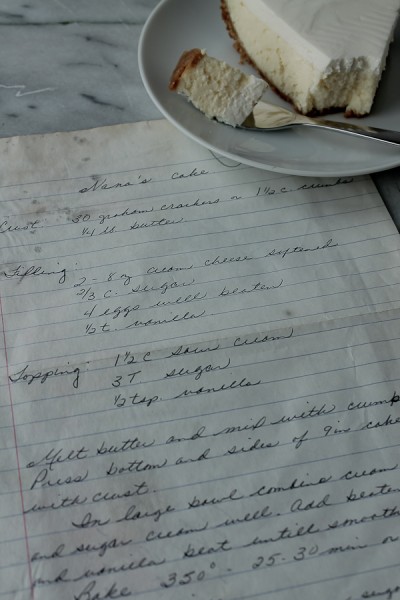 Nana's Cake
Crust: 30 graham crackers or 1½ c crumbs
¼ lb butter
Filling:
2 - 8 oz cream cheese softened
2/3 c. sugar
4 eggs well beaten
½ t. vanilla
Topping: 1½ c sour cream
3 T sugar
½ tsp. vanilla
Melt butter and mix with crumb
Press bottom and sides of 9in cake
with crust.
In large bowl combine cream
and sugar cream well. Add beaten
and vanilla beat untill smooth
Bake 350° - 25-30 min or
sugar